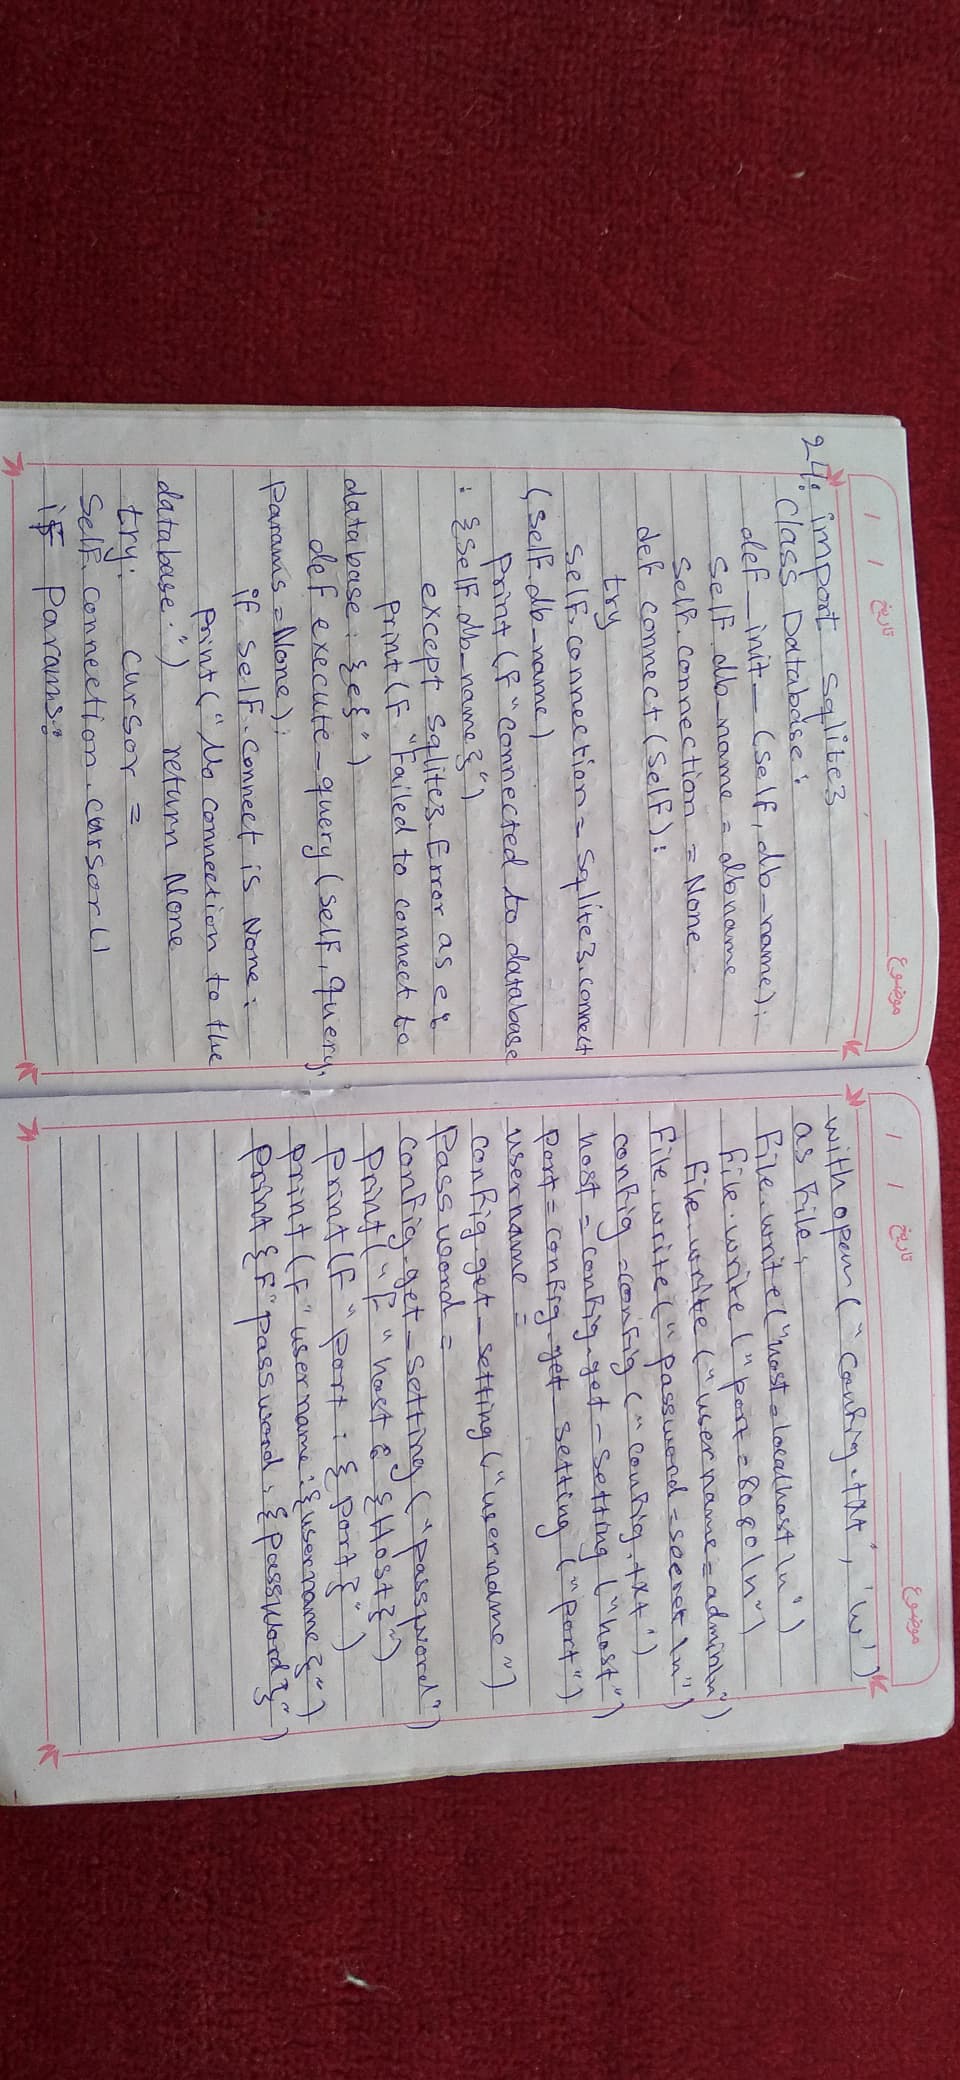 تاریخ / /
موضوع
24: import sqlite3
class Database:
def __init__(self, db_name):
self.db_name = dbname
self.connection = None
def connect(self):
try
self.connection = sqlite3.connect
(self.db_name)
print(f "connected to database
: {self.db_name}")
except sqlite3.Error as e:
print(f "Failed to connect to
database: {e{")
def execute_query(self, query,
params = None):
if self.connect is None:
print("No connection to the
database:") return None
try: cursor =
self.connection.cursor()
if params:
تاریخ / /
موضوع
with open("config.txt", 'w')
as file,
file.write("host=localhost\n")
file.write("port=8080\n")
file.write("username=admin\n")
file.write("password=secret\n")
config = config("config.txt")
host = config.get_setting("host")
port = config.get_setting("port")
username =
config.get_setting("username")
password =
config.get_setting("password")
print("f "host: {Host}")
print(f "port: {port}")
print(f "username:{username}")
print{f "password, {password}")